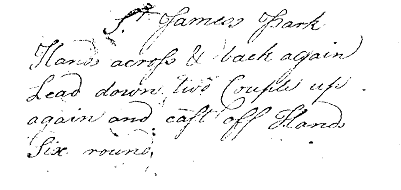 St. James Park
Hands across & back again
Lead down two Couple up
again and cast off Hands
Six round,